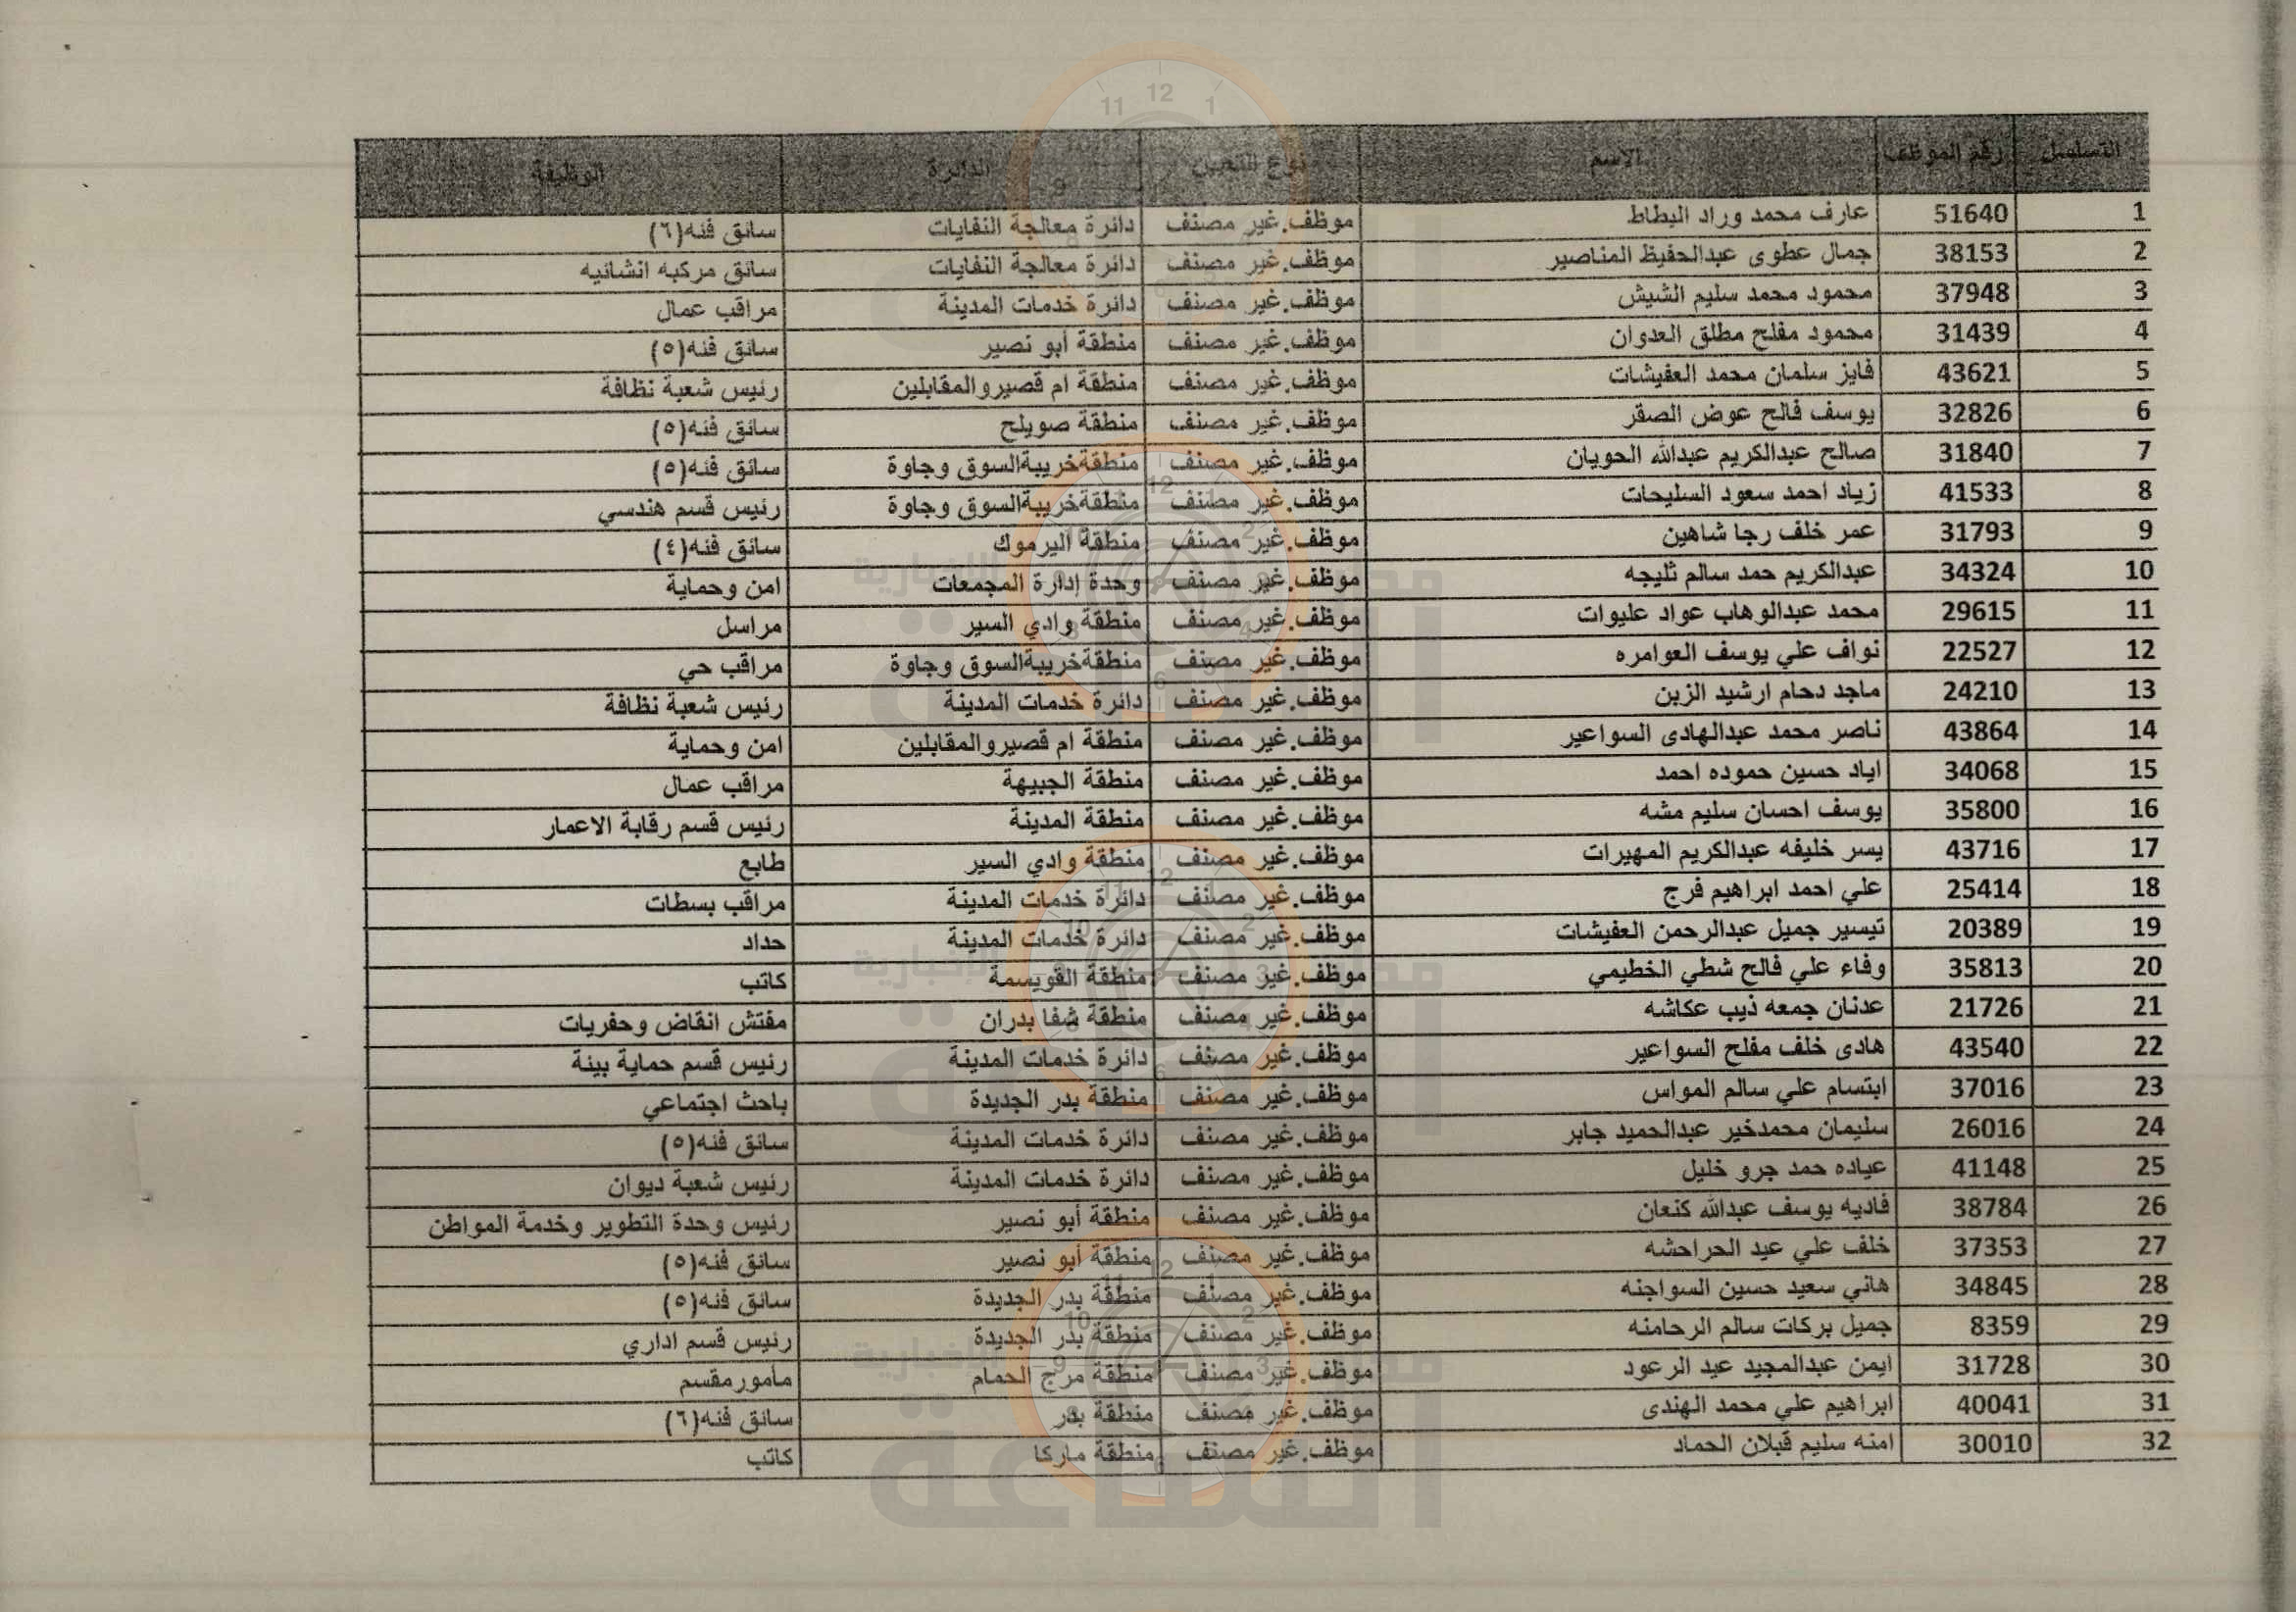 التسلسل رقم الموظف الاسم نوع التعيين الدائرة الوظيفة
1 51640 عارف محمد وراد البطاط موظف.غير مصنف دائرة معالجة النفايات سائق فئه(٦)
2 38153 جمال عطوى عبدالحفيظ المناصير موظف.غير مصنف دائرة معالجة النفايات سائق مركبه انشائيه
3 37948 محمود محمد سليم الشيش موظف.غير مصنف دائرة خدمات المدينة مراقب عمال
4 31439 محمود مفلح مطلق العدوان موظف.غير مصنف منطقة أبو نصير سائق فئه(٥)
5 43621 فايز سلمان محمد العفيشات موظف.غير مصنف منطقة ام قصيروالمقابلين رئيس شعبة نظافة
6 32826 يوسف فالح عوض الصقر موظف.غير مصنف منطقة صويلح سائق فئه(٥)
7 31840 صالح عبدالكريم عبدالله الحويان موظف.غير مصنف منطقةخريبةالسوق وجاوة سائق فئه(٥)
8 41533 زياد احمد سعود السليحات موظف.غير مصنف منطقةخريبةالسوق وجاوة رئيس قسم هندسي
9 31793 عمر خلف رجا شاهين موظف.غير مصنف منطقة اليرموك سائق فئه(٤)
10 34324 عبدالكريم حمد سالم ثليجه موظف.غير مصنف وحدة إدارة المجمعات امن وحماية
11 29615 محمد عبدالوهاب عواد عليوات موظف.غير مصنف منطقة وادي السير مراسل
12 22527 نواف علي يوسف العوامره موظف.غير مصنف منطقةخريبةالسوق وجاوة مراقب حي
13 24210 ماجد دحام ارشيد الزبن موظف.غير مصنف دائرة خدمات المدينة رئيس شعبة نظافة
14 43864 ناصر محمد عبدالهادى السواعير موظف.غير مصنف منطقة ام قصيروالمقابلين امن وحماية
15 34068 اياد حسين حموده احمد موظف.غير مصنف منطقة الجبيهة مراقب عمال
16 35800 يوسف احسان سليم مشه موظف.غير مصنف منطقة المدينة رئيس قسم رقابة الاعمار
17 43716 يسر خليفه عبدالكريم المهيرات موظف.غير مصنف منطقة وادي السير طابع
18 25414 علي احمد ابراهيم فرج موظف.غير مصنف دائرة خدمات المدينة مراقب بسطات
19 20389 تيسير جميل عبدالرحمن العفيشات موظف.غير مصنف دائرة خدمات المدينة حداد
20 35813 وفاء علي فالح شطي الخطيمي موظف.غير مصنف منطقة القويسمة كاتب
21 21726 عدنان جمعه ذيب عكاشه موظف.غير مصنف منطقة شفا بدران مفتش انقاض وحفريات
22 43540 هادى خلف مفلح السواعير موظف.غير مصنف دائرة خدمات المدينة رئيس قسم حماية بيئة
23 37016 ابتسام علي سالم المواس موظف.غير مصنف منطقة بدر الجديدة باحث اجتماعي
24 26016 سليمان محمدخير عبدالحميد جابر موظف.غير مصنف دائرة خدمات المدينة سائق فئه(٥)
25 41148 عياده حمد جرو خليل موظف.غير مصنف دائرة خدمات المدينة رئيس شعبة ديوان
26 38784 فاديه يوسف عبدالله كنعان موظف.غير مصنف منطقة أبو نصير رئيس وحدة التطوير وخدمة المواطن
27 37353 خلف علي عيد الحراحشه موظف.غير مصنف منطقة أبو نصير سائق فئه(٥)
28 34845 هاني سعيد حسين السواجنه موظف.غير مصنف منطقة بدر الجديدة سائق فئه(٥)
29 8359 جميل بركات سالم الرحامنه موظف.غير مصنف منطقة بدر الجديدة رئيس قسم اداري
30 31728 ايمن عبدالمجيد عيد الرعود موظف.غير مصنف منطقة مرج الحمام مأمورمقسم
31 40041 ابراهيم علي محمد الهندى موظف.غير مصنف منطقة بدر سائق فئه(٦)
32 30010 امنه سليم قبلان الحماد موظف.غير مصنف منطقة ماركا كاتب